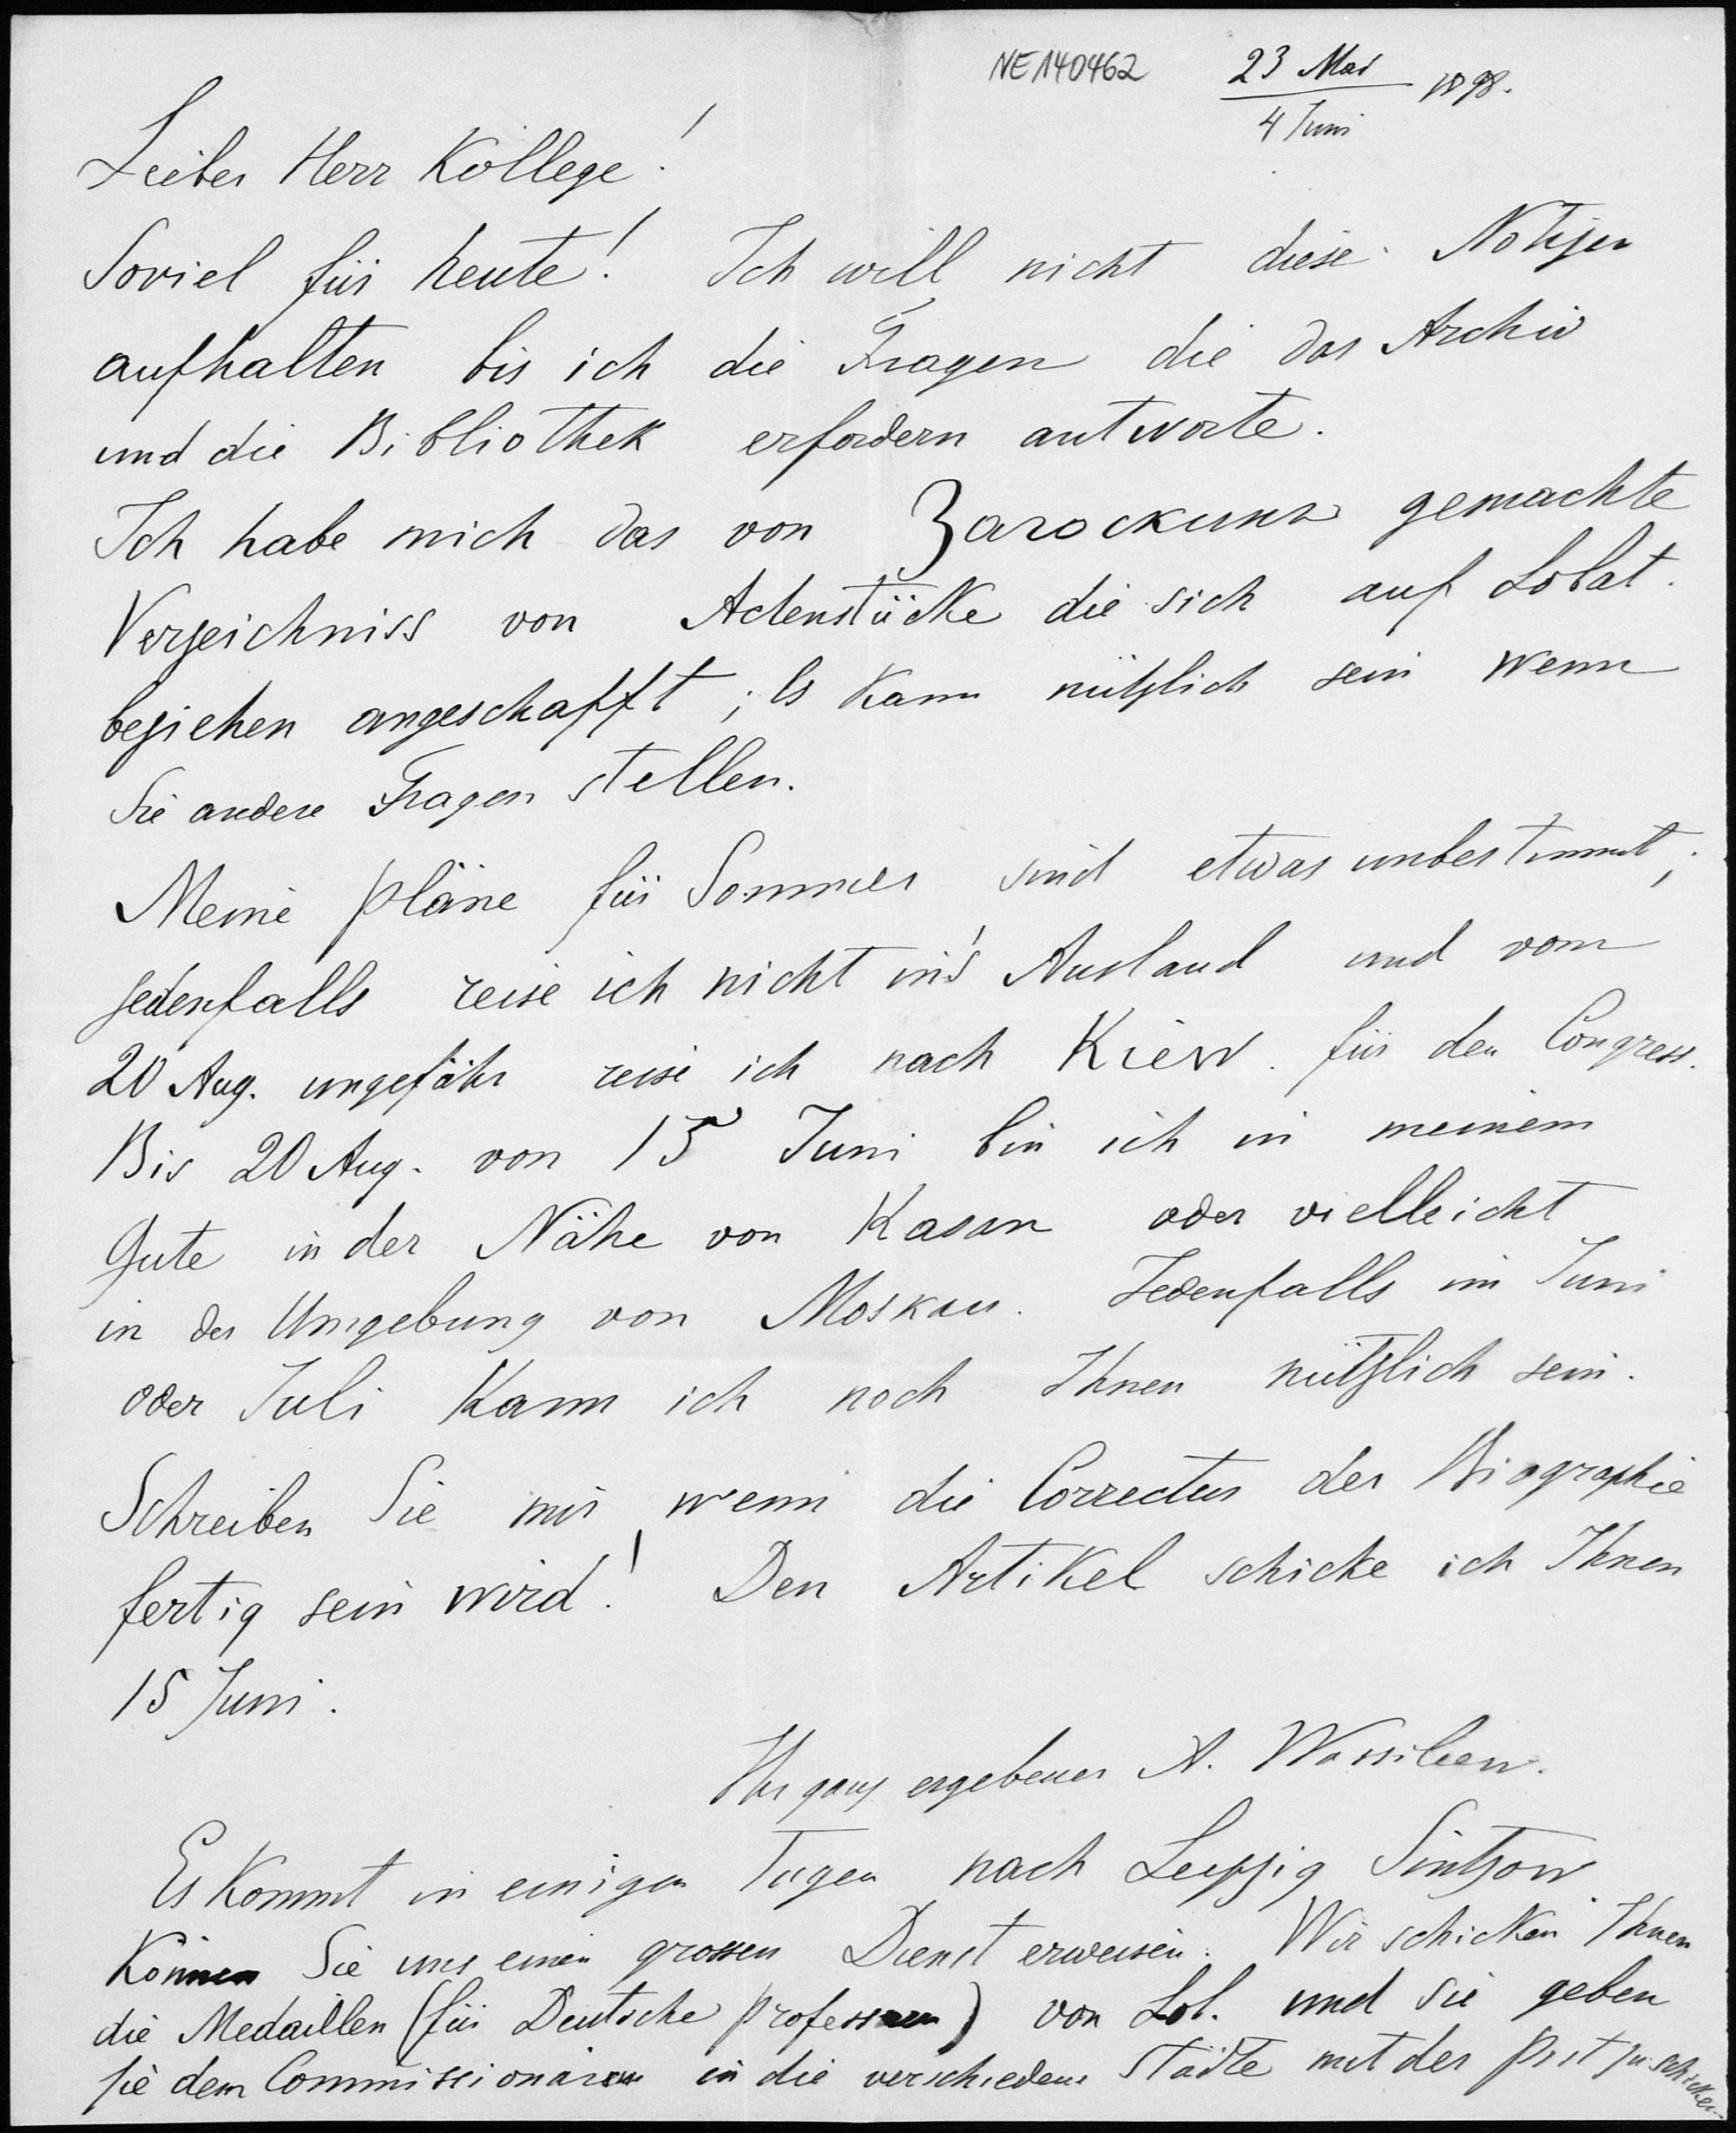 NE140462
23 Mai
4 Juni 1898.
Lieber Herr Kollege!
Soviel für heute! Ich will nicht diese Notizen
aufhalten bis ich die Fragen die das Archiv
und die Bibliothek erfordern antworte.
Ich habe mich das von gemachte
Verzeichniss von Actenstücke die sich auf Lobat.
beziehen angeschafft; Es kann nützlich sein wenn
Sie andere Fragen stellen.
Meine Pläne für Sommer sind etwas unbestimmt;
jedenfalls reise ich nicht in's Ausland und vom
20 Aug. ungefähr reise ich nach Kiew für den Congress.
Bis 20 Aug. von 15 Juni bin ich in meinem
Gute in der Nähe von Kasan oder vielleicht
in der Umgebung von Moskau. Jedenfalls im Juni
oder Juli kann ich noch Ihnen nützlich sein.
Schreiben Sie mir wenn die Correctur der Biographie
fertig sein wird! Den Artikel schicke ich Ihnen
15 Juni.
Ihr ganz ergebener A. Wassiliew.
Es kommt in einigen Tagen nach Leipzig Sintzow
Können Sie uns einen grossen Dienst erweisen. Wir schicken Ihnen
die Medaillen (für Deutsche Professoren) von Lob. und Sie geben
sie dem Commissionären in die verschiedene Städte mit der Post zu schicken